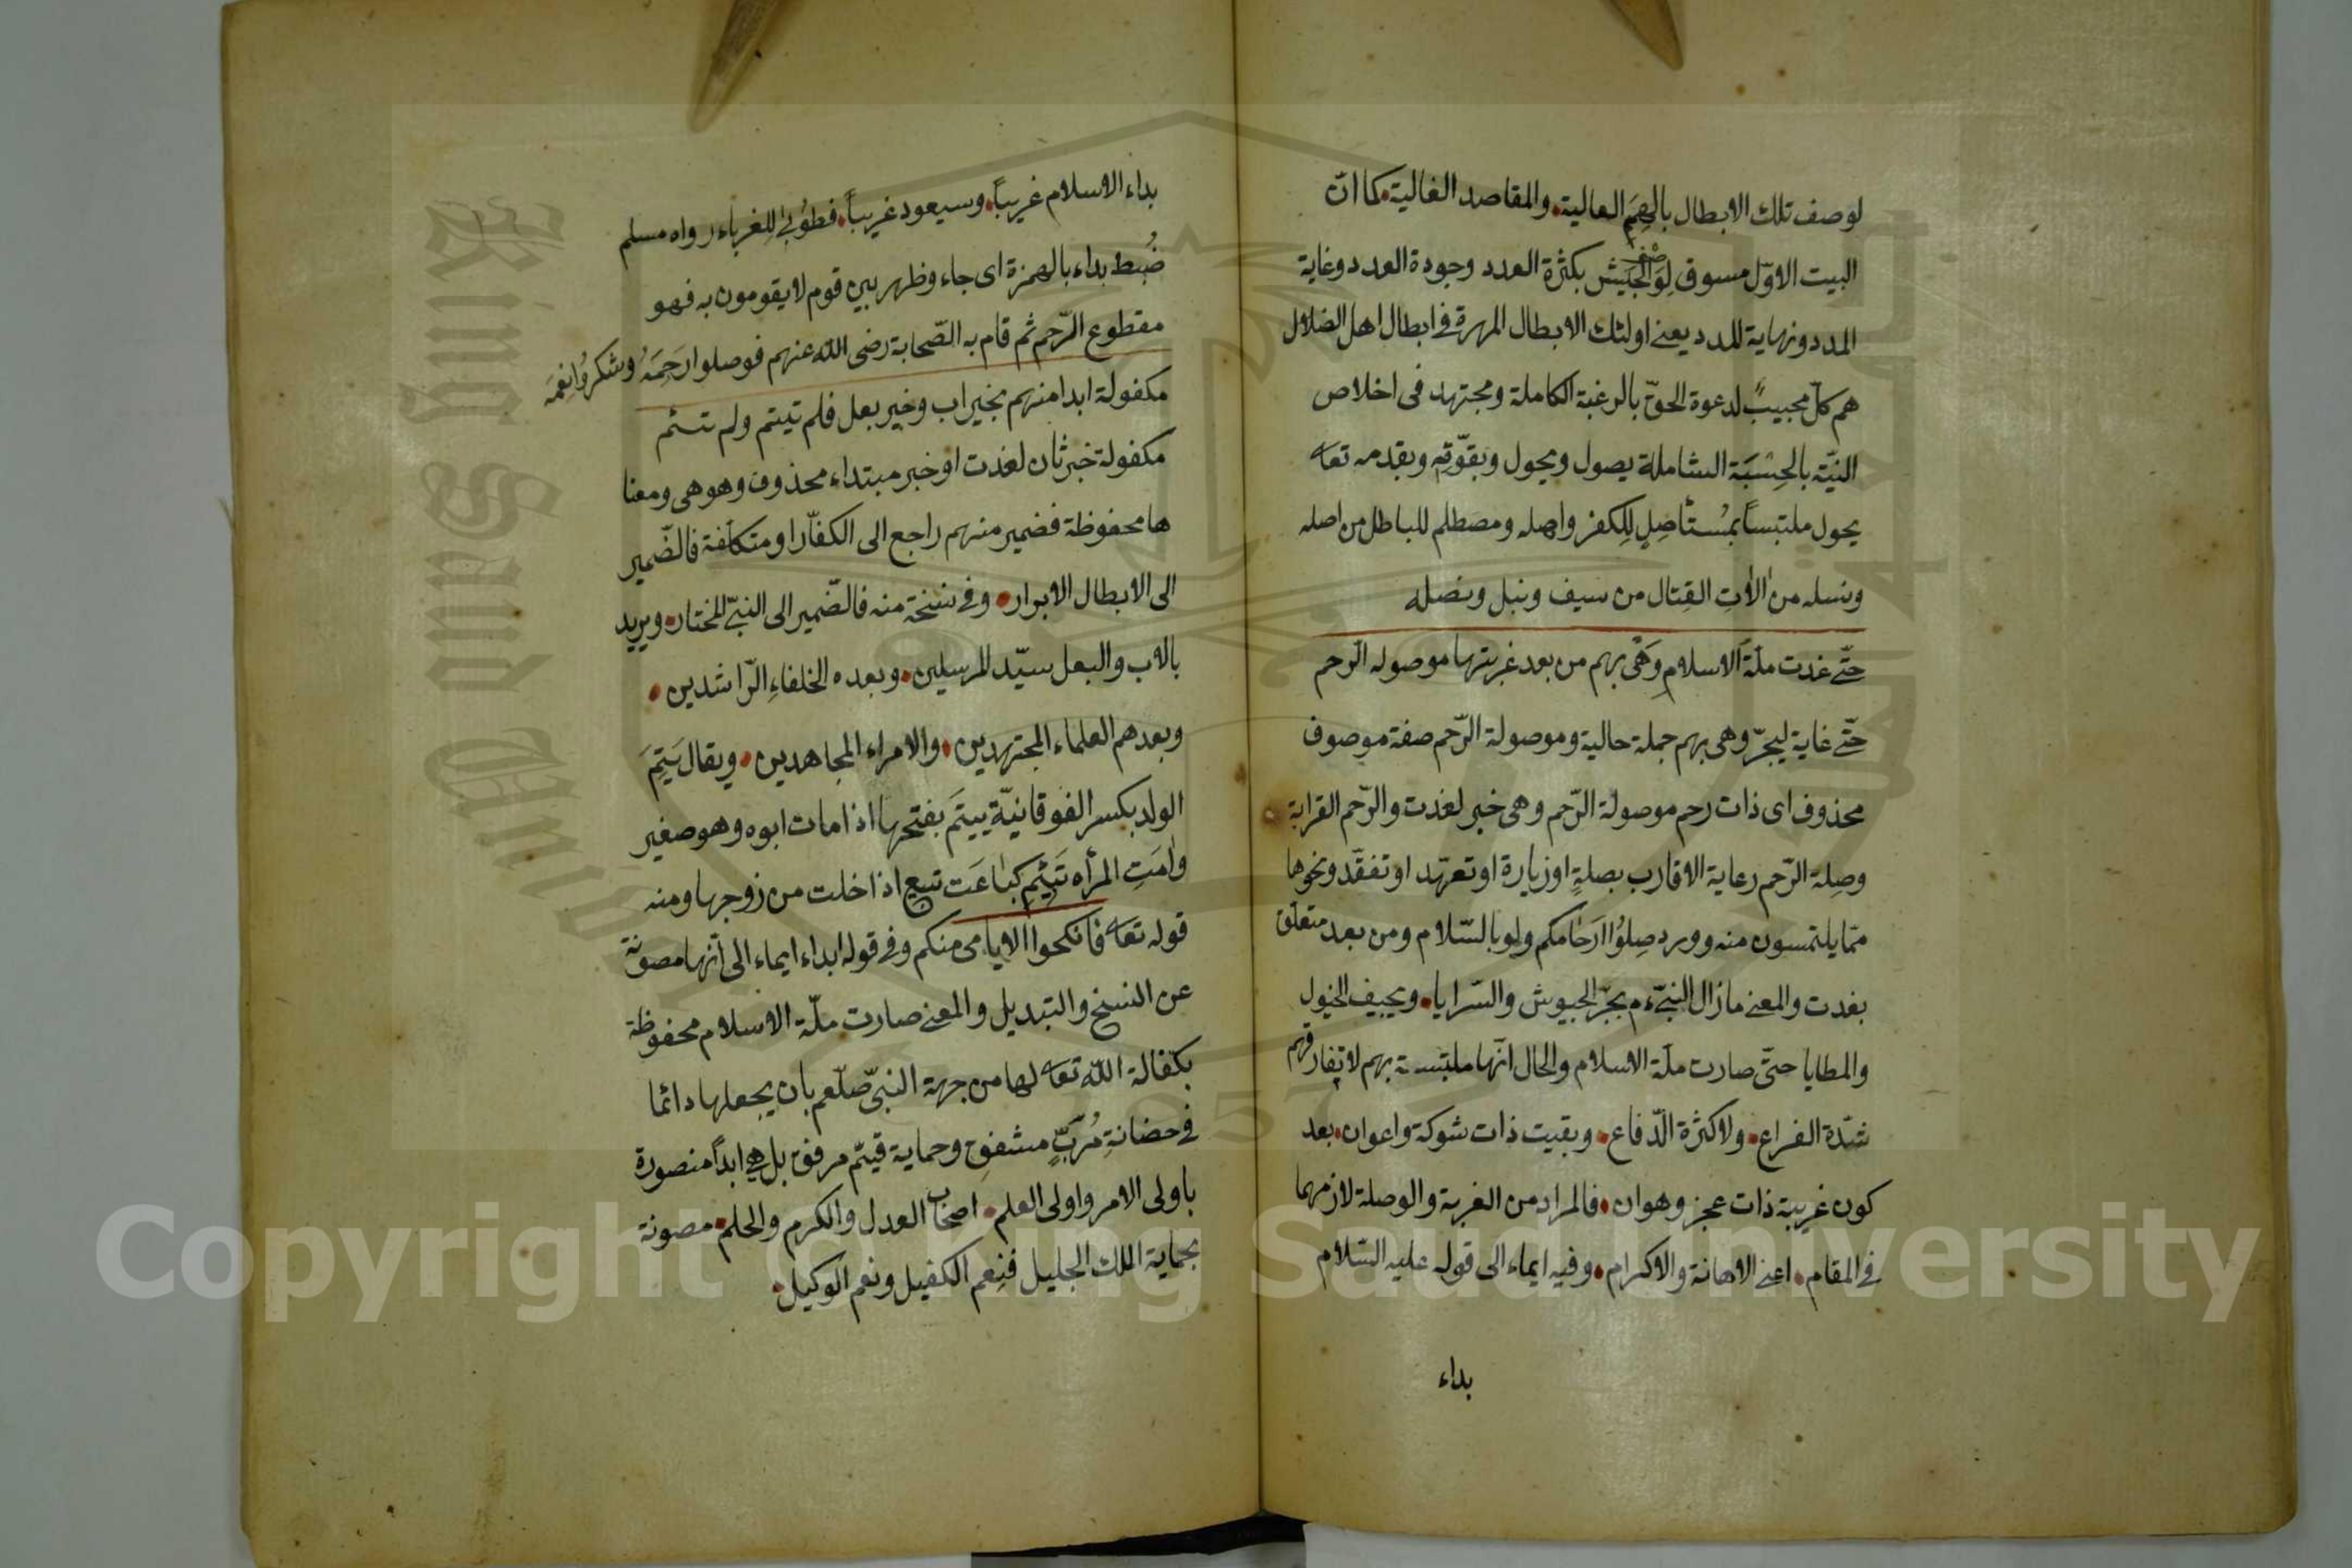 لوصف تلك الابطال بالهِمَم العالية والمقاصد الغالية كما انّ
البيت الاوّل مسوق لِوَصْف الجَيْش بكثرة العدد وجودة العدد وغاية
المدد ونهاية للدد يعنے اولئك الابطال المهرة فے ابطال اهل الضلال
هم كلّ مجيبٍ لدعوة الحقّ بالرغبة الكاملة ومجتهد فى اخلاص
النيّة بالحِسْبَة الشاملة يصول ويجول وبقوّته وبقدمه تعا
يحول ملتبساً بمُستأصِلٍ لِلكفر واهله ومصطلم للباطل من اصله
ونسله من الاٰتِ القِتال من سيف ونبل ونصله
حتّے غدت ملّة الاسلامِ وَهْى بهم من بعد غربتها موصوله الرحم
حتّے غاية ليجرّ وهى بهم جملة حالية وموصولة الرّحم صفة موصوف
محذوف اى ذات رحم موصولة الرّحم وهى خبر لغدت والرّحم القرابة
وصِلة الرّحم رعاية الاقارب بصلةٍ او زيارة او تعهّد او تفقّد ونحوها
ممّا يلتمسون منه وورد صِلوُا ارَحامكم ولو بالسّلام ومن بعد متعلّق
بغدت والمعنے مازال النبىّ ءم يجرّ الجيوش والسّرايا ويجيف الخيول
والمطايا حتىّ صارت ملّة الاسلام والحال انّها ملتبسة بهم لا تفارقهم
شدّة القراع ولا كثرة الدّفاع وبقيت ذات شوكة واعوان بعد
كون غريبة ذات عجز وهوان فالمراد من الغربة والوصلة لازمهما
فے المقام اعنے الاهانة والاكرام وفيه ايماء الى قوله عليه السّلام
بداء
بداء الاسلام غريباً وسيعود غريباً فطوُبىٰ لِلغرباء رواه مسلم
ضُبط بداء بالهمزة اى جاء وظهر بين قوم لا يقومون به فهو
مقطوع الرّحم ثم قام به الصّحابة رضى الله عنهم فوصلوا رَحِمَهُ وشكرُوا نِعَمَه
مكفولة ابدا منهم بخير اب وخير بعل فلم تيتم ولم تئم
مكفولة خبر ثان لغدت او خبر مبتداء محذوف وهو هى ومعنا
ها محفوظة فضمير منهم راجع الى الكفّار او متكلّفة فالضّمير
الى الابطال الابرار وفے نسخة منه فالضّمير الى النبىّ المختار ويريد
بالاب والبعل سيّد المرسلين وبعده الخلفاءِ الرّاشدين
وبعدهم العلماء المجتهدين والامراء المجاهدين ويقال يَتِمَ
الولد بكسر الفوقانيّة ييتَم بفتحها اذا مات ابوه وهو صغير
واٰمَتِ المرأه تَئِيم كبٰاعَت تبيع اذا خلت من زوجها ومنه
قوله تعا فانكحوا الايامى منكم وفے قوله ابداء ايماء الى انّها مصونة
عن النسخ والتبديل والمعنے صارت ملّة الاسلام محفوظة
بكفالة اللّه تعا لها من جهة النبىّ صلّعم بان يجعلها دائما
فے حضانةِ مُربٍّ مشفقٍ وحماية قيّم مرفق بل هے ابداً منصورة
باولى الامر واولى العلم اصحاب العدل والكرم والحلم مصونة
بحماية الملك الجليل فنِعم الكفيل ونعم الوكيل
Copyright © King Saud University
King Saud University
1957